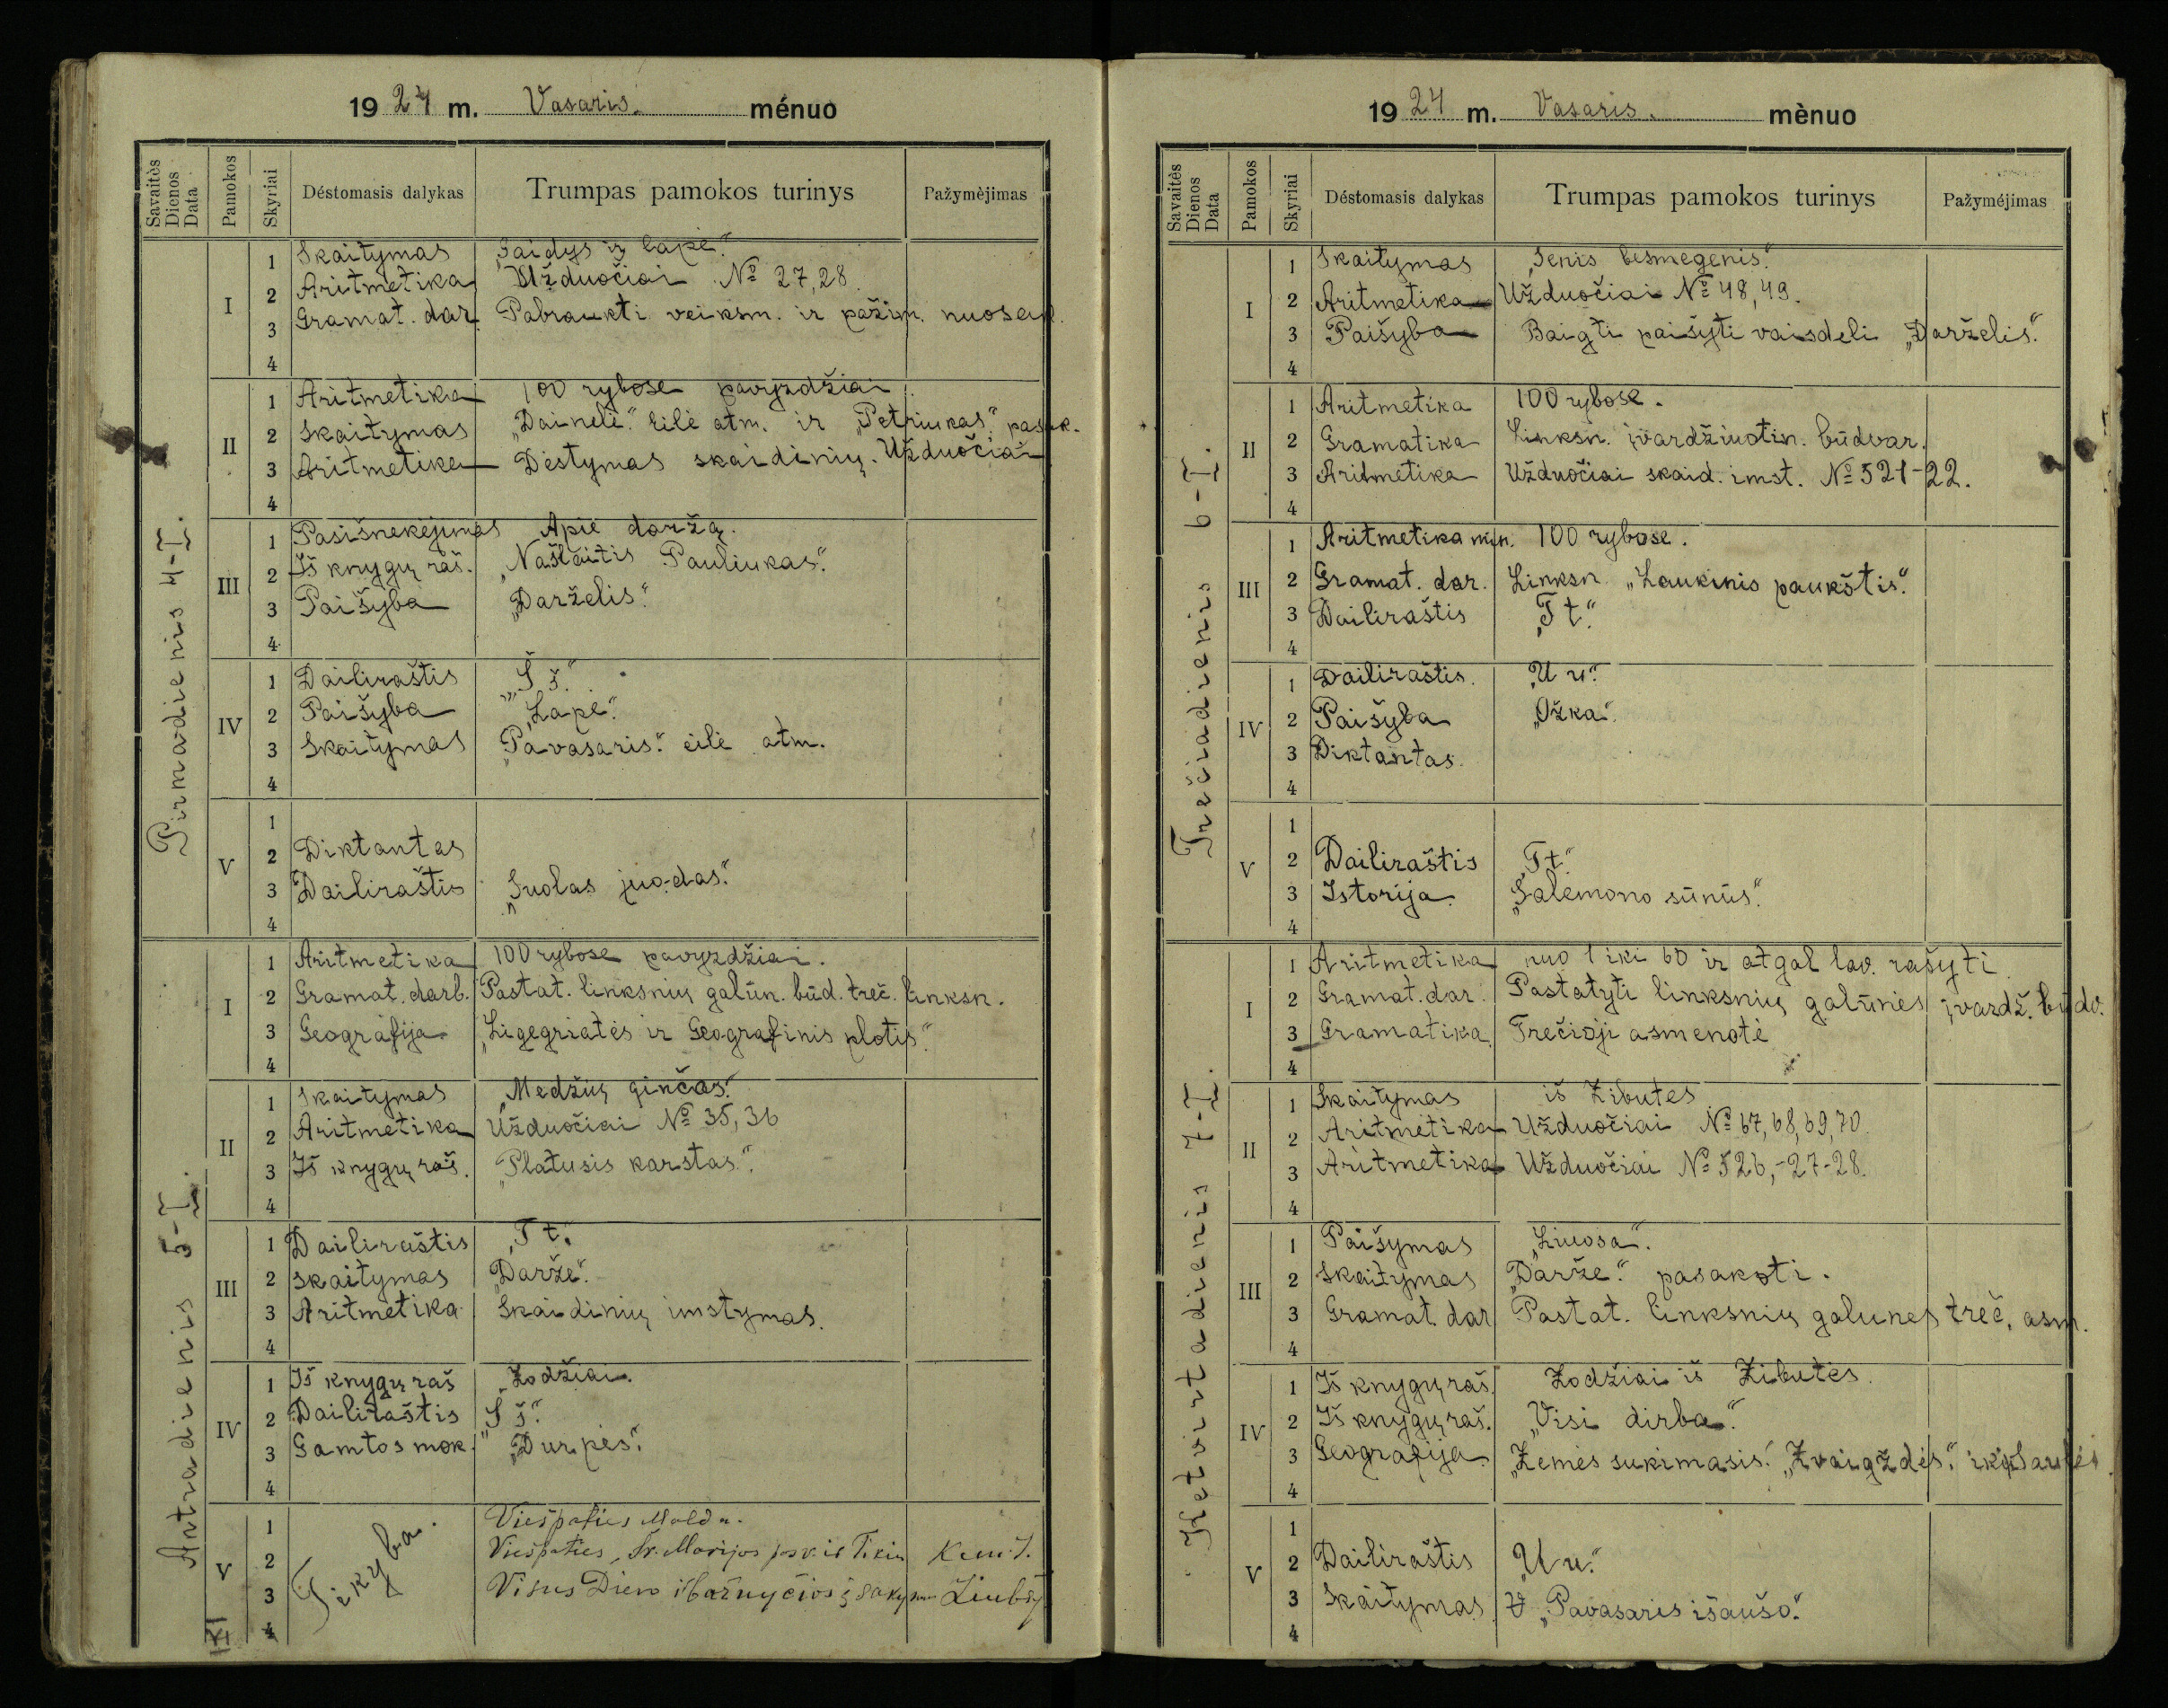 1924 m. Vasaris. ménuo
Savaitės Dienos Data Pamokos Skyriai Dėstomasis dalykas Trumpas pamokos turinys Pažymėjimas
Pirmadienis 4-I.
I
1 Skaitymas „Gaidys ir lapė."
2 Aritmetika Užduočiai № 27,28.
3 Gramat. dar. Pabraukti veiksm. ir pažim. nuosak.
4
II
1 Aritmetika 100 rybose pavyzdžiai
2 Skaitymas „Dainelė." eilė atm. ir „Petriukas." pasak.
3 Aritmetika Dėstymas skaidinių. Užduočiai
4
III
1 Pasišnekėjimas Apie daržą.
2 Iš knygų raš. „Našlaitis Pauliukas."
3 Paišyba „Darželis."
4
IV
1 Dailiraštis „Š š."
2 Paišyba „Lapė."
3 Skaitymas „Pavasaris." eilė atm.
4
V
1
2 Diktantas
3 Dailiraštis „Suolas juodas."
4
Antradienis 5-I.
I
1 Aritmetika 100 rybose pavyzdžiai.
2 Gramat. darb. Pastat. linksnių galūn. būd. treč. linksn.
3 Geografija „Ligegriatės ir Geografinis plotis."
4
II
1 Skaitymas „Medžių ginčas."
2 Aritmetika Užduočiai № 35, 36
3 Iš knygų raš. „Platusis karstas."
4
III
1 Dailiraštis „T t."
2 Skaitymas „Darže."
3 Aritmetika Skaidinių imstymas.
4
IV
1 Iš knygų raš Žodžiai.
2 Dailiraštis „Š š."
3 Gamtos mok. „Durpės."
4
V
Tikyba.
1 Viešpaties Malda.
2 Viešpaties, Šv. Marijos
3 Visus Dievo ir bažnyčios įsakym
4
1924 m. Vasaris. mènuo
Savaitės Dienos Data Pamokos Skyriai Dėstomasis dalykas Trumpas pamokos turinys Pažymėjimas
Trečiadienis 6-I.
I
1 Skaitymas „Senis besmegenis."
2 Aritmetika Užduočiai № 48, 49.
3 Paišyba Baigti paišyti vaisdeli „Darželis."
4
II
1 Aritmetika 100 rybose.
2 Gramatika Linksn. įvardžiuotin. būdvar.
3 Aritmetika Užduočiai skaid. imst. № 521-22.
4
III
1 Aritmetika min. 100 rybose.
2 Gramat. dar. Linksn. „Laukinis paukštis."
3 Dailiraštis „T t."
4
IV
1 Dailiraštis. „U u."
2 Paišyba „Ožka."
3 Diktantas.
4
V
1
2 Dailiraštis „T t."
3 Istorija. „Salemono sūnūs."
4
Ketvirtadienis 7-I.
I
1 Aritmetika nuo 1 iki 60 ir atgal lav. rašyti
2 Gramat. dar. Pastatyti linksnių galūnės įvardž. būdv.
3 Gramatika. Trečioji asmenotė
4
II
1 Skaitymas iš Žibutės
2 Aritmetika Užduočiai № 67, 68, 69, 70.
3 Aritmetika Užduočiai № 526,-27-28.
4
III
1 Paišymas „Liuosa".
2 Skaitymas „Darže." pasakoti.
3 Gramat. dar Pastat. linksnių galunes treč. asm.
4
IV
1 Iš knygų raš. Žodžiai iš Žibutės.
2 Iš knygų raš. „Visi dirba."
3 Geografija „Žemės sukimasis." „Žvaigždės."
4
V
1
2 Dailiraštis „U u."
3 Skaitymas „Pavasaris išaušo."
4